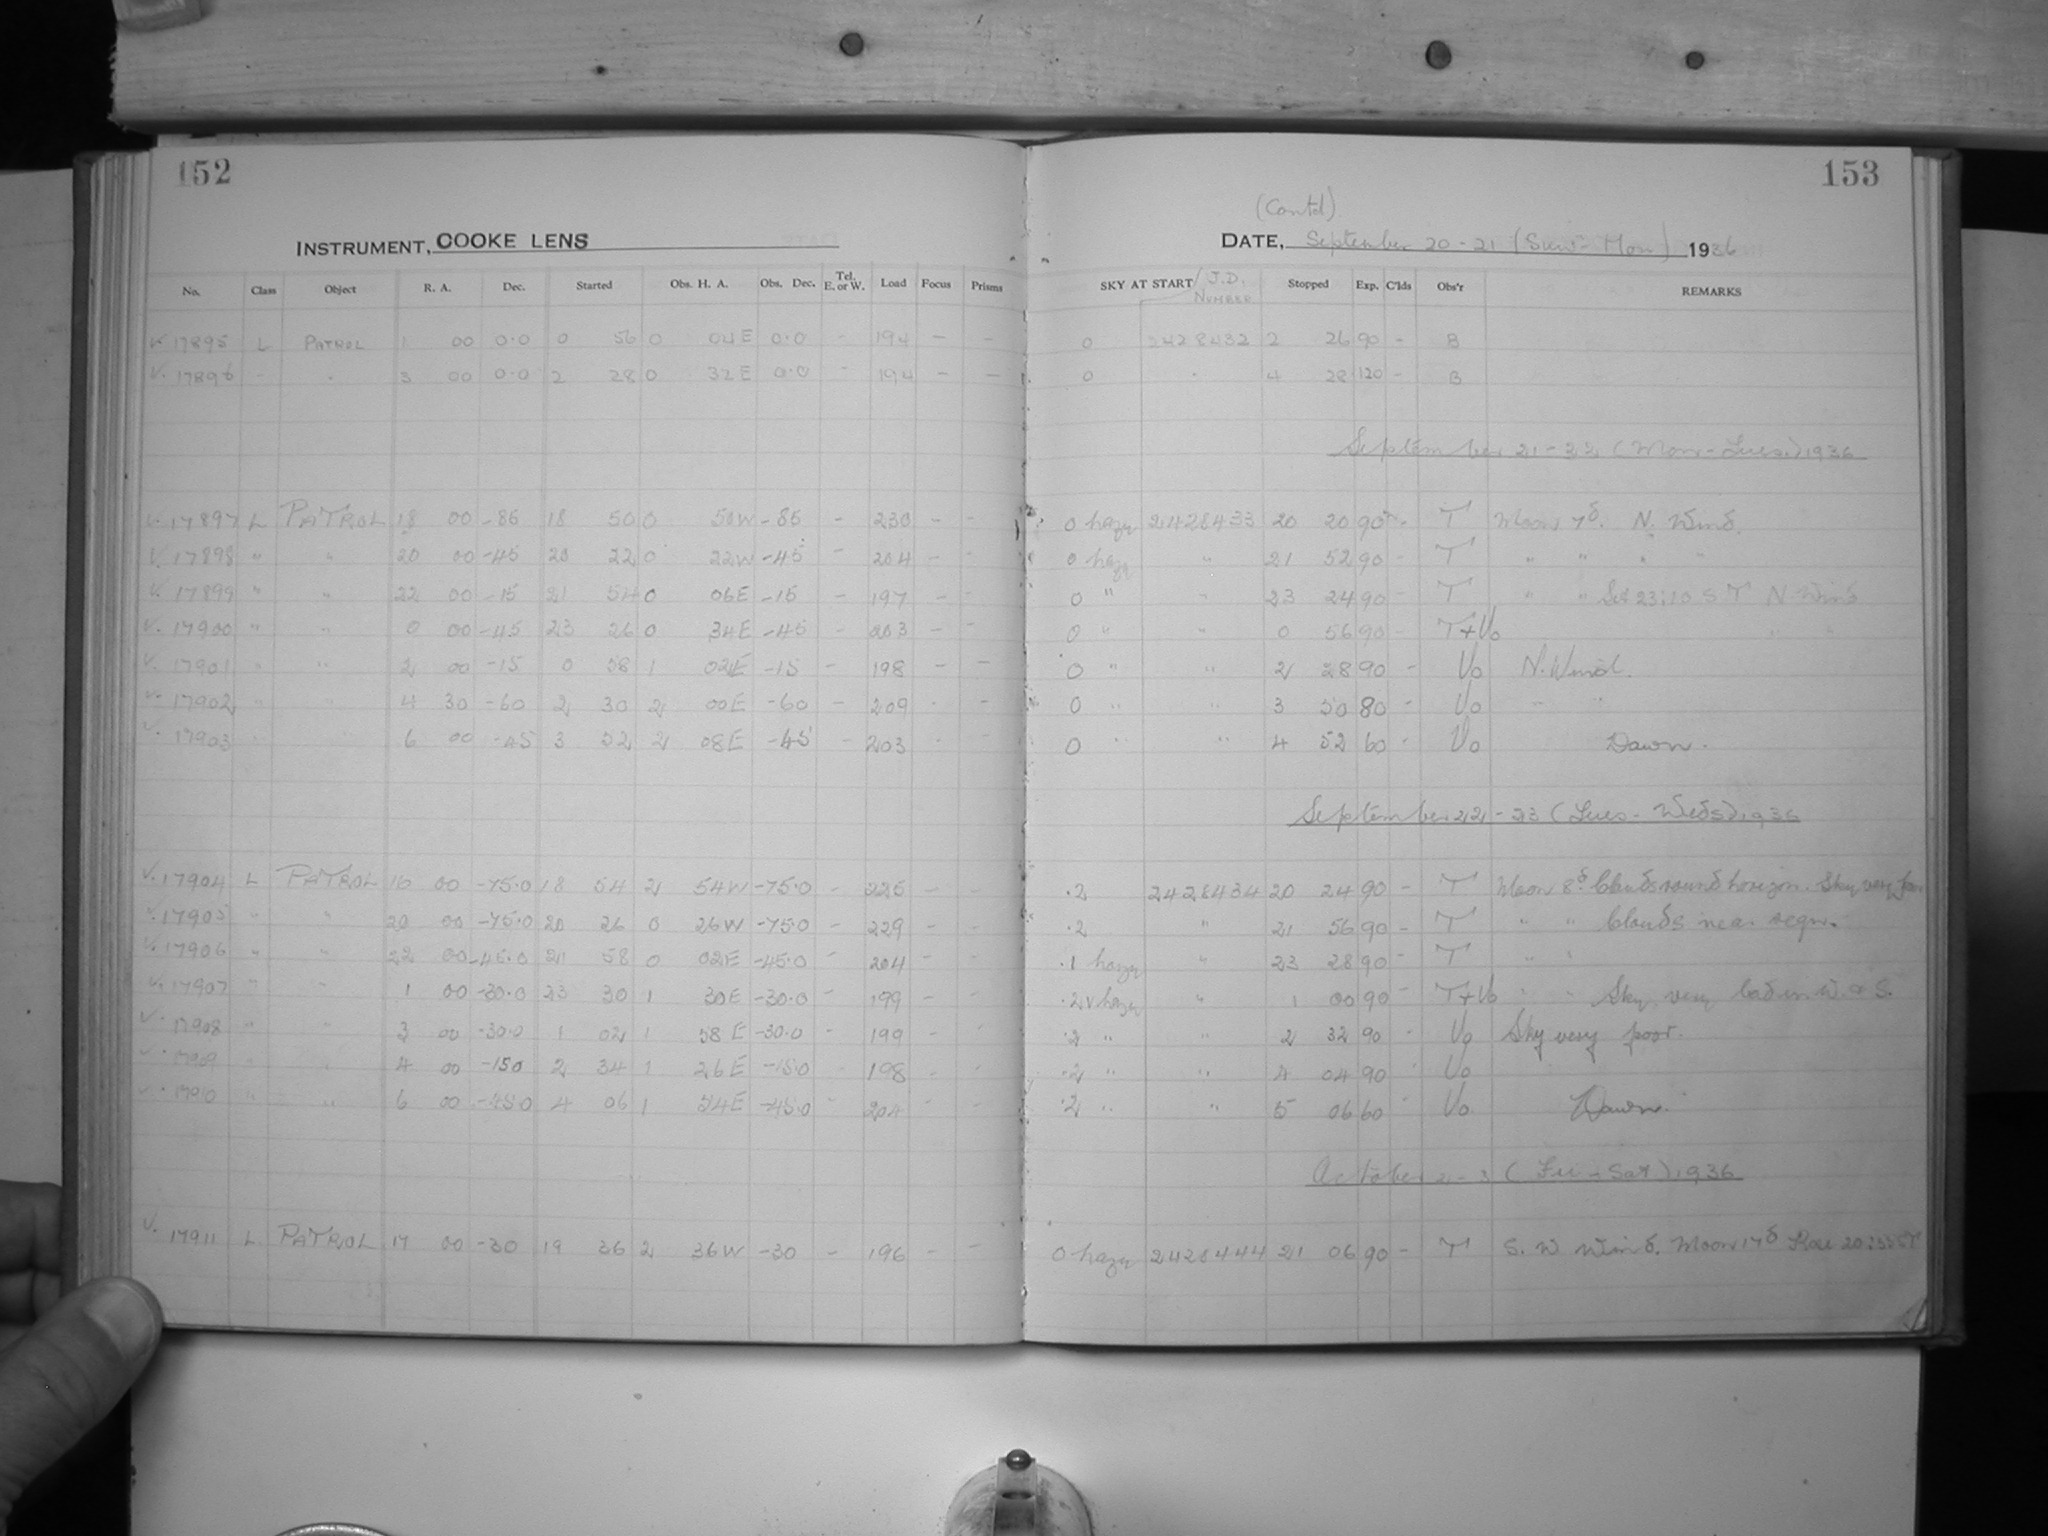 152
INSTRUMENT, COOKE LENS
No. Class Object R. A. Dec. Started Obs. H. A. Obs. Dec. Tel. E. or W. Load Focus Prisms
17895 L PATROL 1 00 0.0 0 56 0 04E 0.0 - 194 - -
17896 3 00 0.0 2 28 0 32E 0.0 - 194 - -
17897 L PATROL 18 00 -86 18 50 0 50W -85 - 230 - -
17898 " " 20 00 -45 20 22 0 22W -45 - 204 - -
17899 " " 22 00 -15 21 54 0 06E -15 - 197 - -
17900 " " 0 00 -45 23 26 0 34E -45 - 203 - -
17901 " " 2 00 -15 0 58 1 02E -15 - 198 - -
17902 " " 4 30 -60 2 30 2 00E -60 - 209 - -
17903 " " 6 00 -45 3 52 2 08E -45 - 203 - -
17904 L PATROL 16 00 -75.0 18 54 2 54W -75.0 - 225 - -
17905 " " 20 00 -75.0 20 26 0 26W -75.0 - 229 - -
17906 " " 22 00 -45.0 21 58 0 02E -45.0 - 204 - -
17907 " " 1 00 -30.0 23 30 1 30E -30.0 - 199 - -
17908 " " 3 00 -30.0 1 02 1 58E -30.0 - 199 - -
17909 " " 4 00 -15.0 2 34 1 26E -15.0 - 198 - -
17910 " " 6 00 -45.0 4 06 1 54E -45.0 - 204 - -
17911 L PATROL 17 00 -30 19 36 2 36W -30 - 196 - -
153
(Contd)
DATE, September 20-21 (Sun-Mon) 1936
SKY AT START / J.D. NUMBER Stopped Exp. C'lds Obs'r REMARKS
0 2428432 2 26 90 - B
0 " 4 28 120 - B
September 21-22 (Mon-Tues.) 1936
0 hazy 2428433 20 20 90 - T Moon 7d. N. Wind.
0 hazy " 21 52 90 - T " " " "
0 " " 23 24 90 - T " " Set 23:10 S T N Wind
0 " " 0 56 90 - T+Vo " "
0 " " 2 28 90 - Vo N. Wind.
0 " " 3 50 80 - Vo " "
0 " " 4 52 60 - Vo Dawn.
September 22-23 (Tues-Weds) 1936
.2 2428434 20 24 90 - T Moon 8d. Clouds round horizon. Sky very
.2 " 21 56 90 - T " " Clouds near
.1 hazy " 23 28 90 - T " "
.2 v hazy " 1 00 90 - T+Vo " " Sky very bad in W. & S.
.2 " " 2 32 90 - Vo Sky very poor.
.2 " " 4 04 90 - Vo
.2 " " 5 06 60 - Vo Dawn.
October 2-3 (Fri-Sat) 1936
0 hazy 2428444 21 06 90 - T S. W Wind. Moon 17d Rose